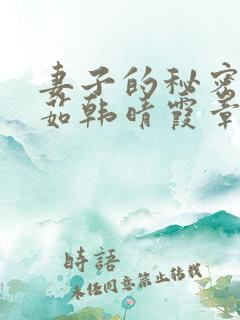 妻子的秘密
茹韩晴霞章
時語
未经同意禁止转载